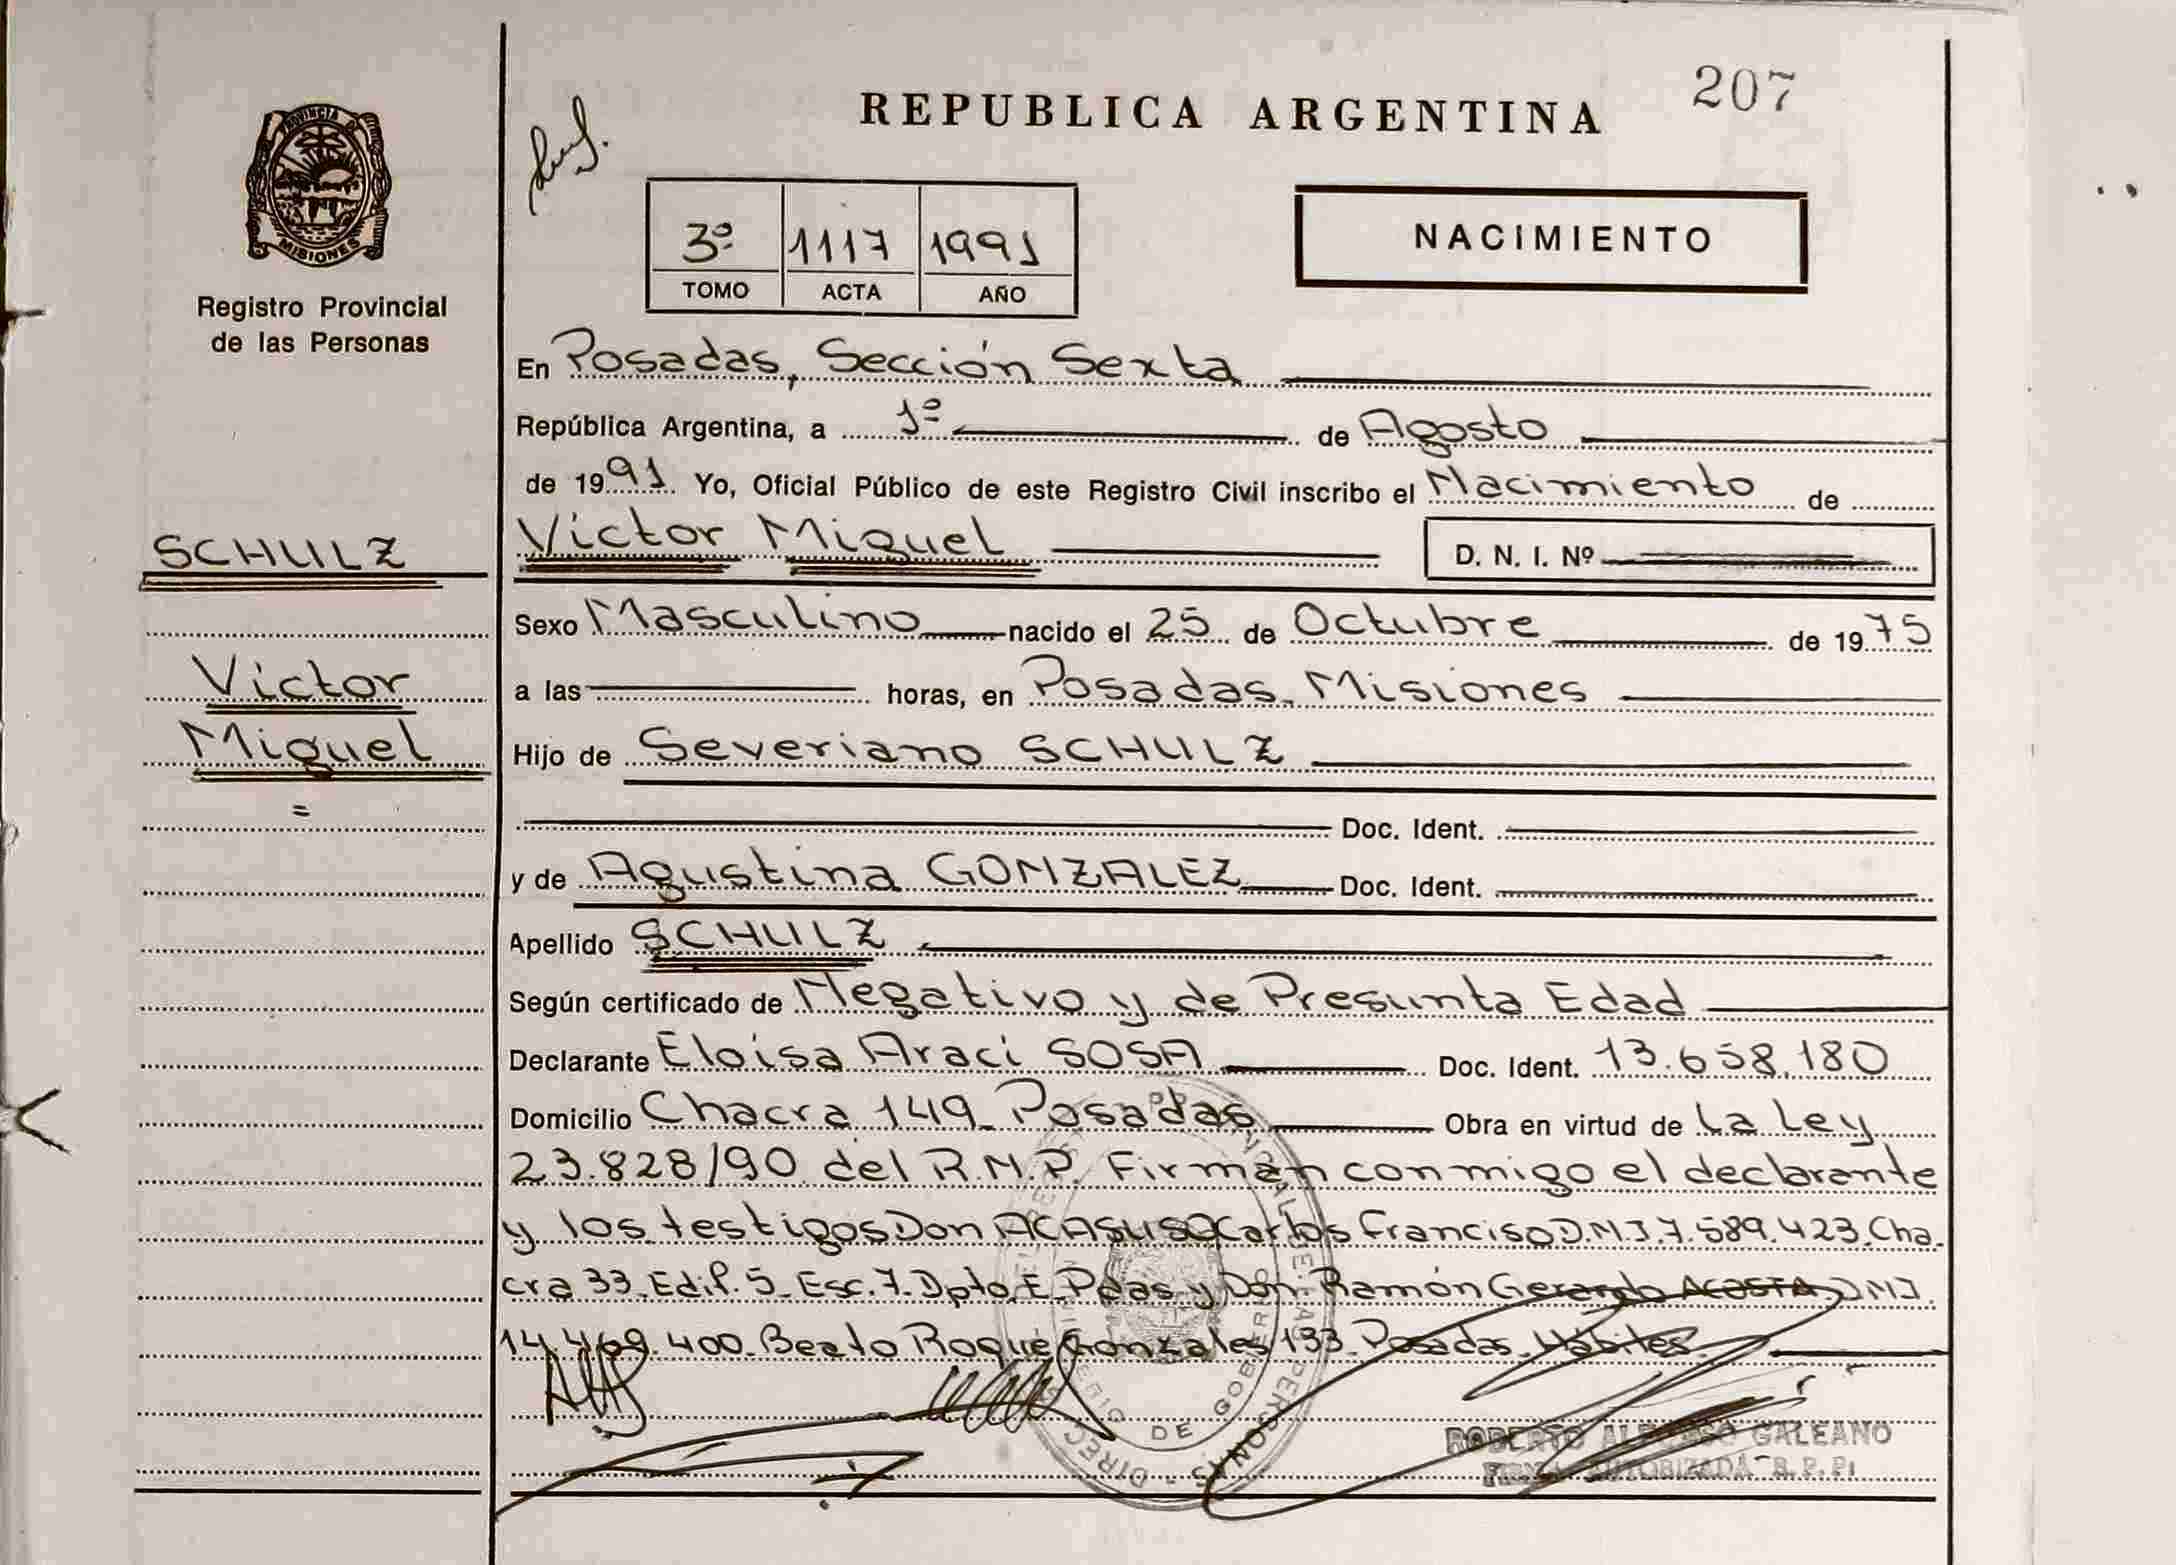 207
REPUBLICA ARGENTINA
PROVINCIA D
MISIONES
Registro Provincial
de las Personas
3º 1117 1991
TOMO ACTA AÑO
NACIMIENTO
En Posadas, Sección Sexta
República Argentina, a 1º de Agosto
de 1991 Yo, Oficial Público de este Registro Civil inscribo el Nacimiento de
SCHULZ
Victor Miguel D. N. I. Nº
Sexo Masculino nacido el 25 de Octubre de 1975
Victor
a las horas, en Posadas, Misiones
Miguel
Hijo de Severiano SCHULZ
=
Doc. Ident.
y de Agustina GONZALEZ Doc. Ident.
Apellido SCHULZ
Según certificado de Negativo y de Presunta Edad
Declarante Eloisa Araci SOSA Doc. Ident. 13.658.180
Domicilio Chacra 149_ Posadas Obra en virtud de La Ley
23.828/90 del R.N.P. Firman conmigo el declarante
y los testigos Don ACASUSO Carlos Francisco D.N.I 7.589.423 Cha
cra 33 Edif. 5_ Esc. 7. Dpto. E_ Pdas y Don Ramón Gerardo ACOSTA D.N.I.
14.469.400_ Beato Roque Gonzales 133_ Posadas_ Hábiles
ROBERTO ALFONSO GALEANO
FIRMA AUTORIZADA R.P.P.